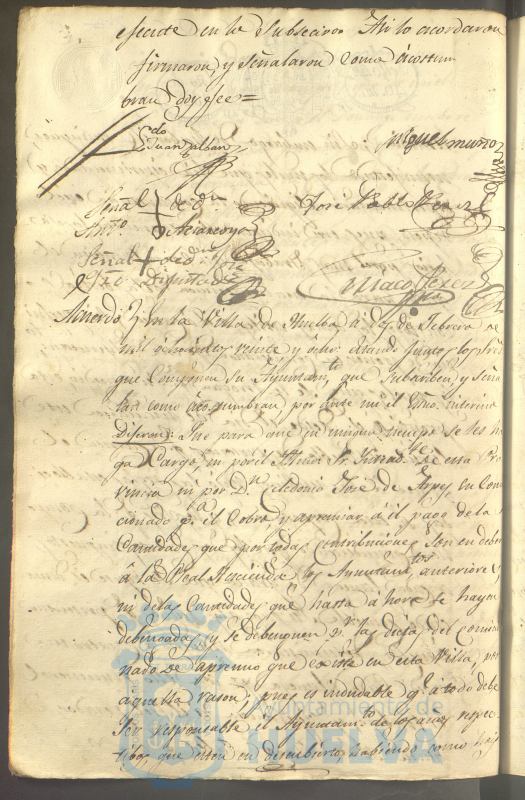 efectte en lo Subsecivo. Asi lo acordaron
firmaron y señalaron como acostum
bran doy fee =
Juan Alban
Miguel Munzo
Señal de dn
Anto
José Pablo Perez
Señal de dn
Diputado
Perez
Acuerdo En la Villa de Huelva a dos de Febrero de
mil ochocientos veinte y ocho: estando juntos los Sres
que componen su Ayuntamto que subscriben y seña
lan como acostumbran, por ante mi el Esno interino
Dijeron: Que para que en ningun tiempo se les ha
ga Cargo, ni por el Sr Yntendte de esta Pro
vincia ni por Dn Celedonio José de Arpe, en Comi
cionado pa el Cobro y apremiar á el pago de las
Cantidades que por todas Contribuciones son en deber
á la Real Hacienda los Ayuntamtos anteriores
ni de las Cantidades que hasta ahora se hayan
debengado, y se debenguen pr las dietas del comicio
nado de apremio que existe en esta Villa, por
aquella rason; pues es indudable qe á todo debe
ser responsable el Ayuntamto de los años respec
tibos que esten en descubierto, habiendo como
Ayuntamiento de
HUELVA